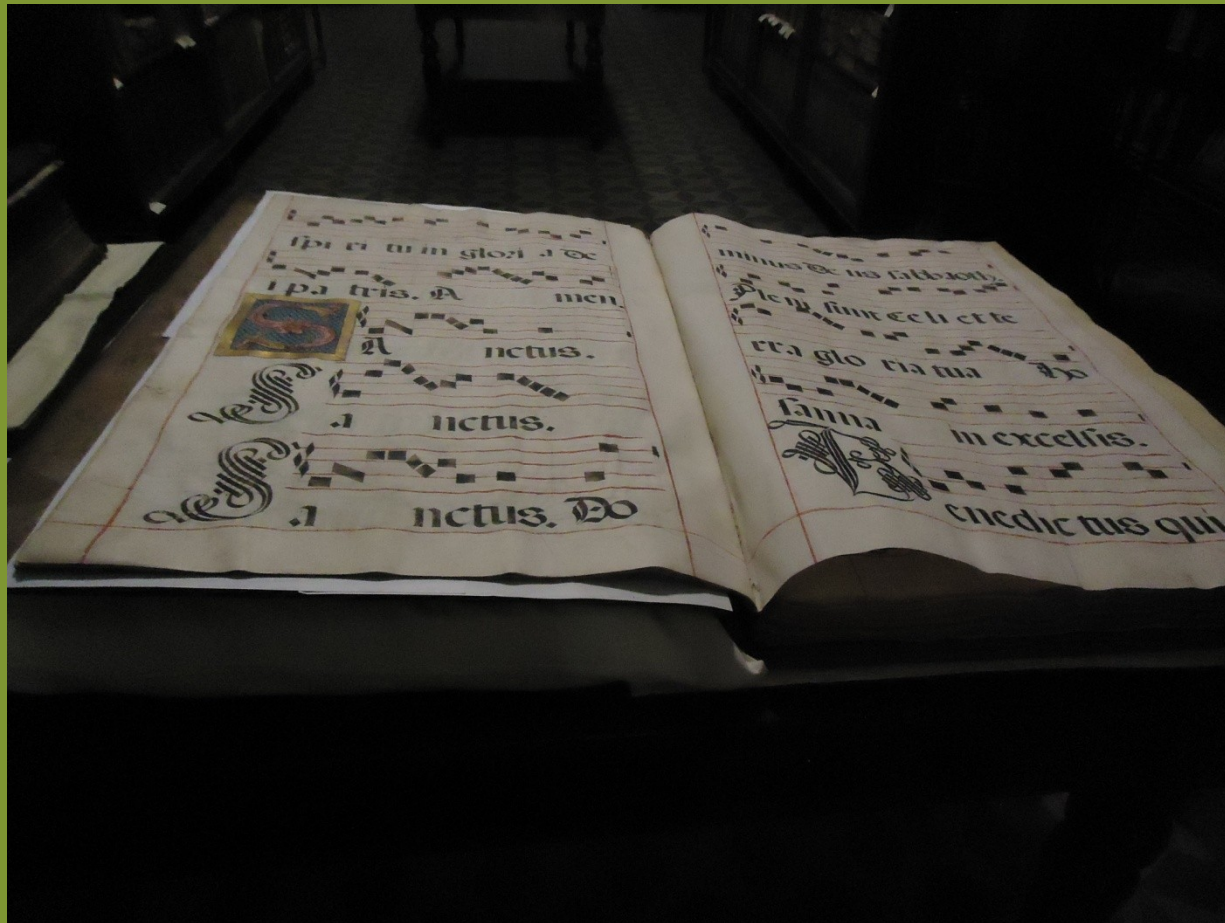 spi ri tu in glori a De
i pa tris. A men.
SA nctus.
Sa nctus.
Sa nctus. Do
minus De us sabbaoth.
Pleni sunt Celi et te
rra glo ria tua Ho
sanna in excelsis.
Benedic tus qui